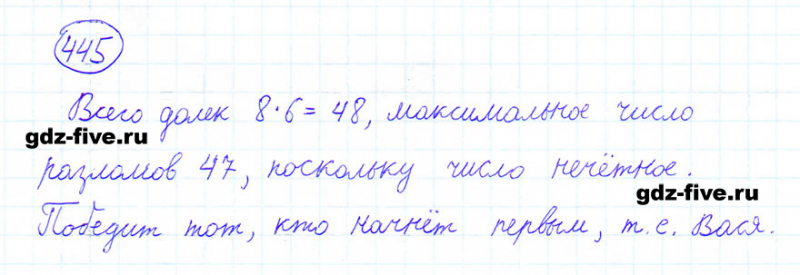 445
Всего долек 8·6=48, максимальное число
gdz-five.ru
разломов 47, поскольку число нечётное.
gdz-five.ru
Победит тот, кто начнёт первым, т.е. Вася.